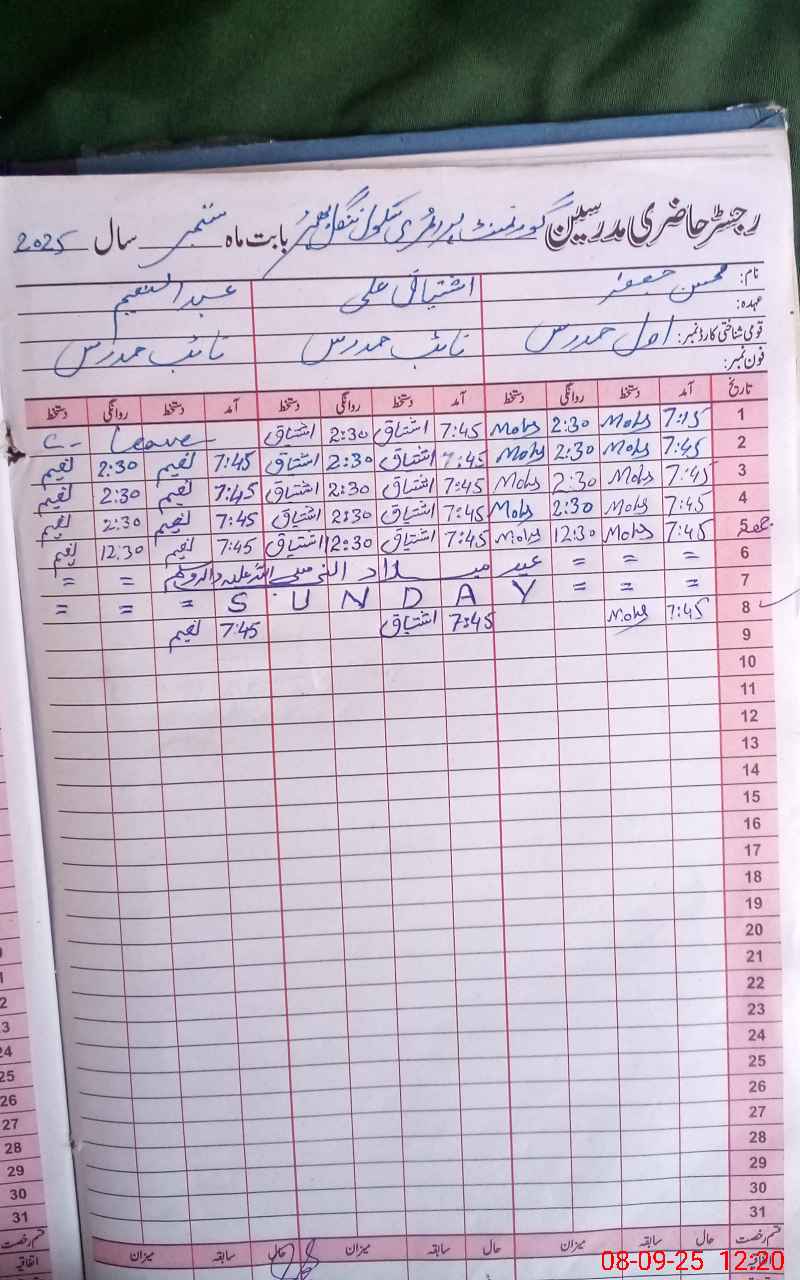 رجسٹر حاضری مدرسین گورنمنٹ پرائمری سکول بابت ماہ ستمبر سال 2025
نام: محسن جعفر اشتیاق علی عبدالنعیم
عہدہ:
قومی شناختی کارڈ نمبر: اول مدرس نائب مدرس نائب مدرس
فون نمبر:
تاریخ آمد دستخط روانگی دستخط آمد دستخط روانگی دستخط آمد دستخط روانگی دستخط
1 7:15 Mohs 2:30 Mohs 7:45 اشتیاق 2:30 اشتیاق C- Leave
2 7:45 Mohs 2:30 Mohs 7:45 اشتیاق 2:30 اشتیاق 7:45 نعیم 2:30 نعیم
3 7:45 Mohs 2:30 Mohs 7:45 اشتیاق 2:30 اشتیاق 7:45 نعیم 2:30 نعیم
4 7:45 Mohs 2:30 Mohs 7:45 اشتیاق 2:30 اشتیاق 7:45 نعیم 2:30 نعیم
5 جمعہ 7:45 Mohs 12:30 Mohs 7:45 اشتیاق 12:30 اشتیاق 7:45 نعیم 12:30 نعیم
6 = = = عید میلاد النبی صلی اللہ علیہ والہ وسلم = =
7 = = = S U N D A Y = = =
8 7:45 Mohs 7:45 اشتیاق 7:45 نعیم
9
10
11
12
13
14
15
16
17
18
19
20
21
22
23
24
25
26
27
28
29
30
31
قسم رخصت حال سابقہ میزان حال سابقہ میزان حال سابقہ میزان
اتفاقیہ
08-09-25 12:20